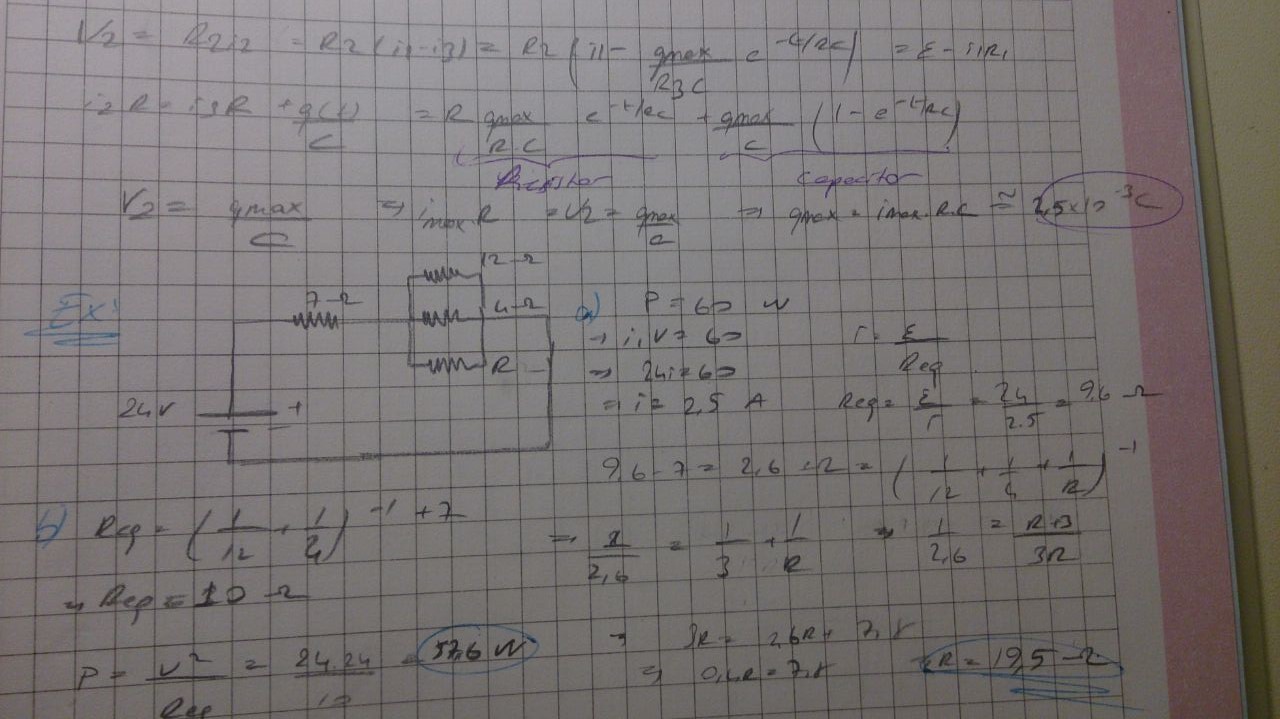 V2 = R2i2 = R2 (i1-i3) = R2 (i1 - qmax/R3C e^-t/RC) = ε - i1R1
i2R = i3R + q(t)/C = R qmax/R.C e^-t/RC + qmax/C (1 - e^-t/RC)
Resistor Capacitor
V2 = qmax/C ⇒ imax.R = V2 = qmax/C ⇒ qmax = imax.R.C ≅ 2,5x10^-3 C
Ex:
7 Ω
12 Ω
4 Ω
R
24V
+
-
a) P = 60 W
→ i.V = 60
⇒ 24i = 60
⇒ i = 2,5 A
I = ε/Req
Req = ε/I = 24/2.5 = 9,6 Ω
9,6 - 7 = 2,6 Ω = (1/12 + 1/4 + 1/R)^-1
⇒ 1/2,6 = 1/3 + 1/R ⇒ 1/2,6 = R+3/3R
⇒ 3R = 2,6R + 7,8
⇒ 0,4R = 7,8 ⇒ R = 19,5 Ω
b) Req = (1/12 + 1/4)^-1 + 7
⇒ Req = 10 Ω
P = V²/Req = 24.24/10 = 57,6 W